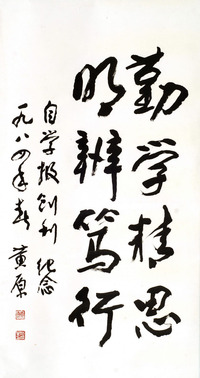 勤学精思
明辨笃行
自学报创刊纪念
一九八四年春 黄原